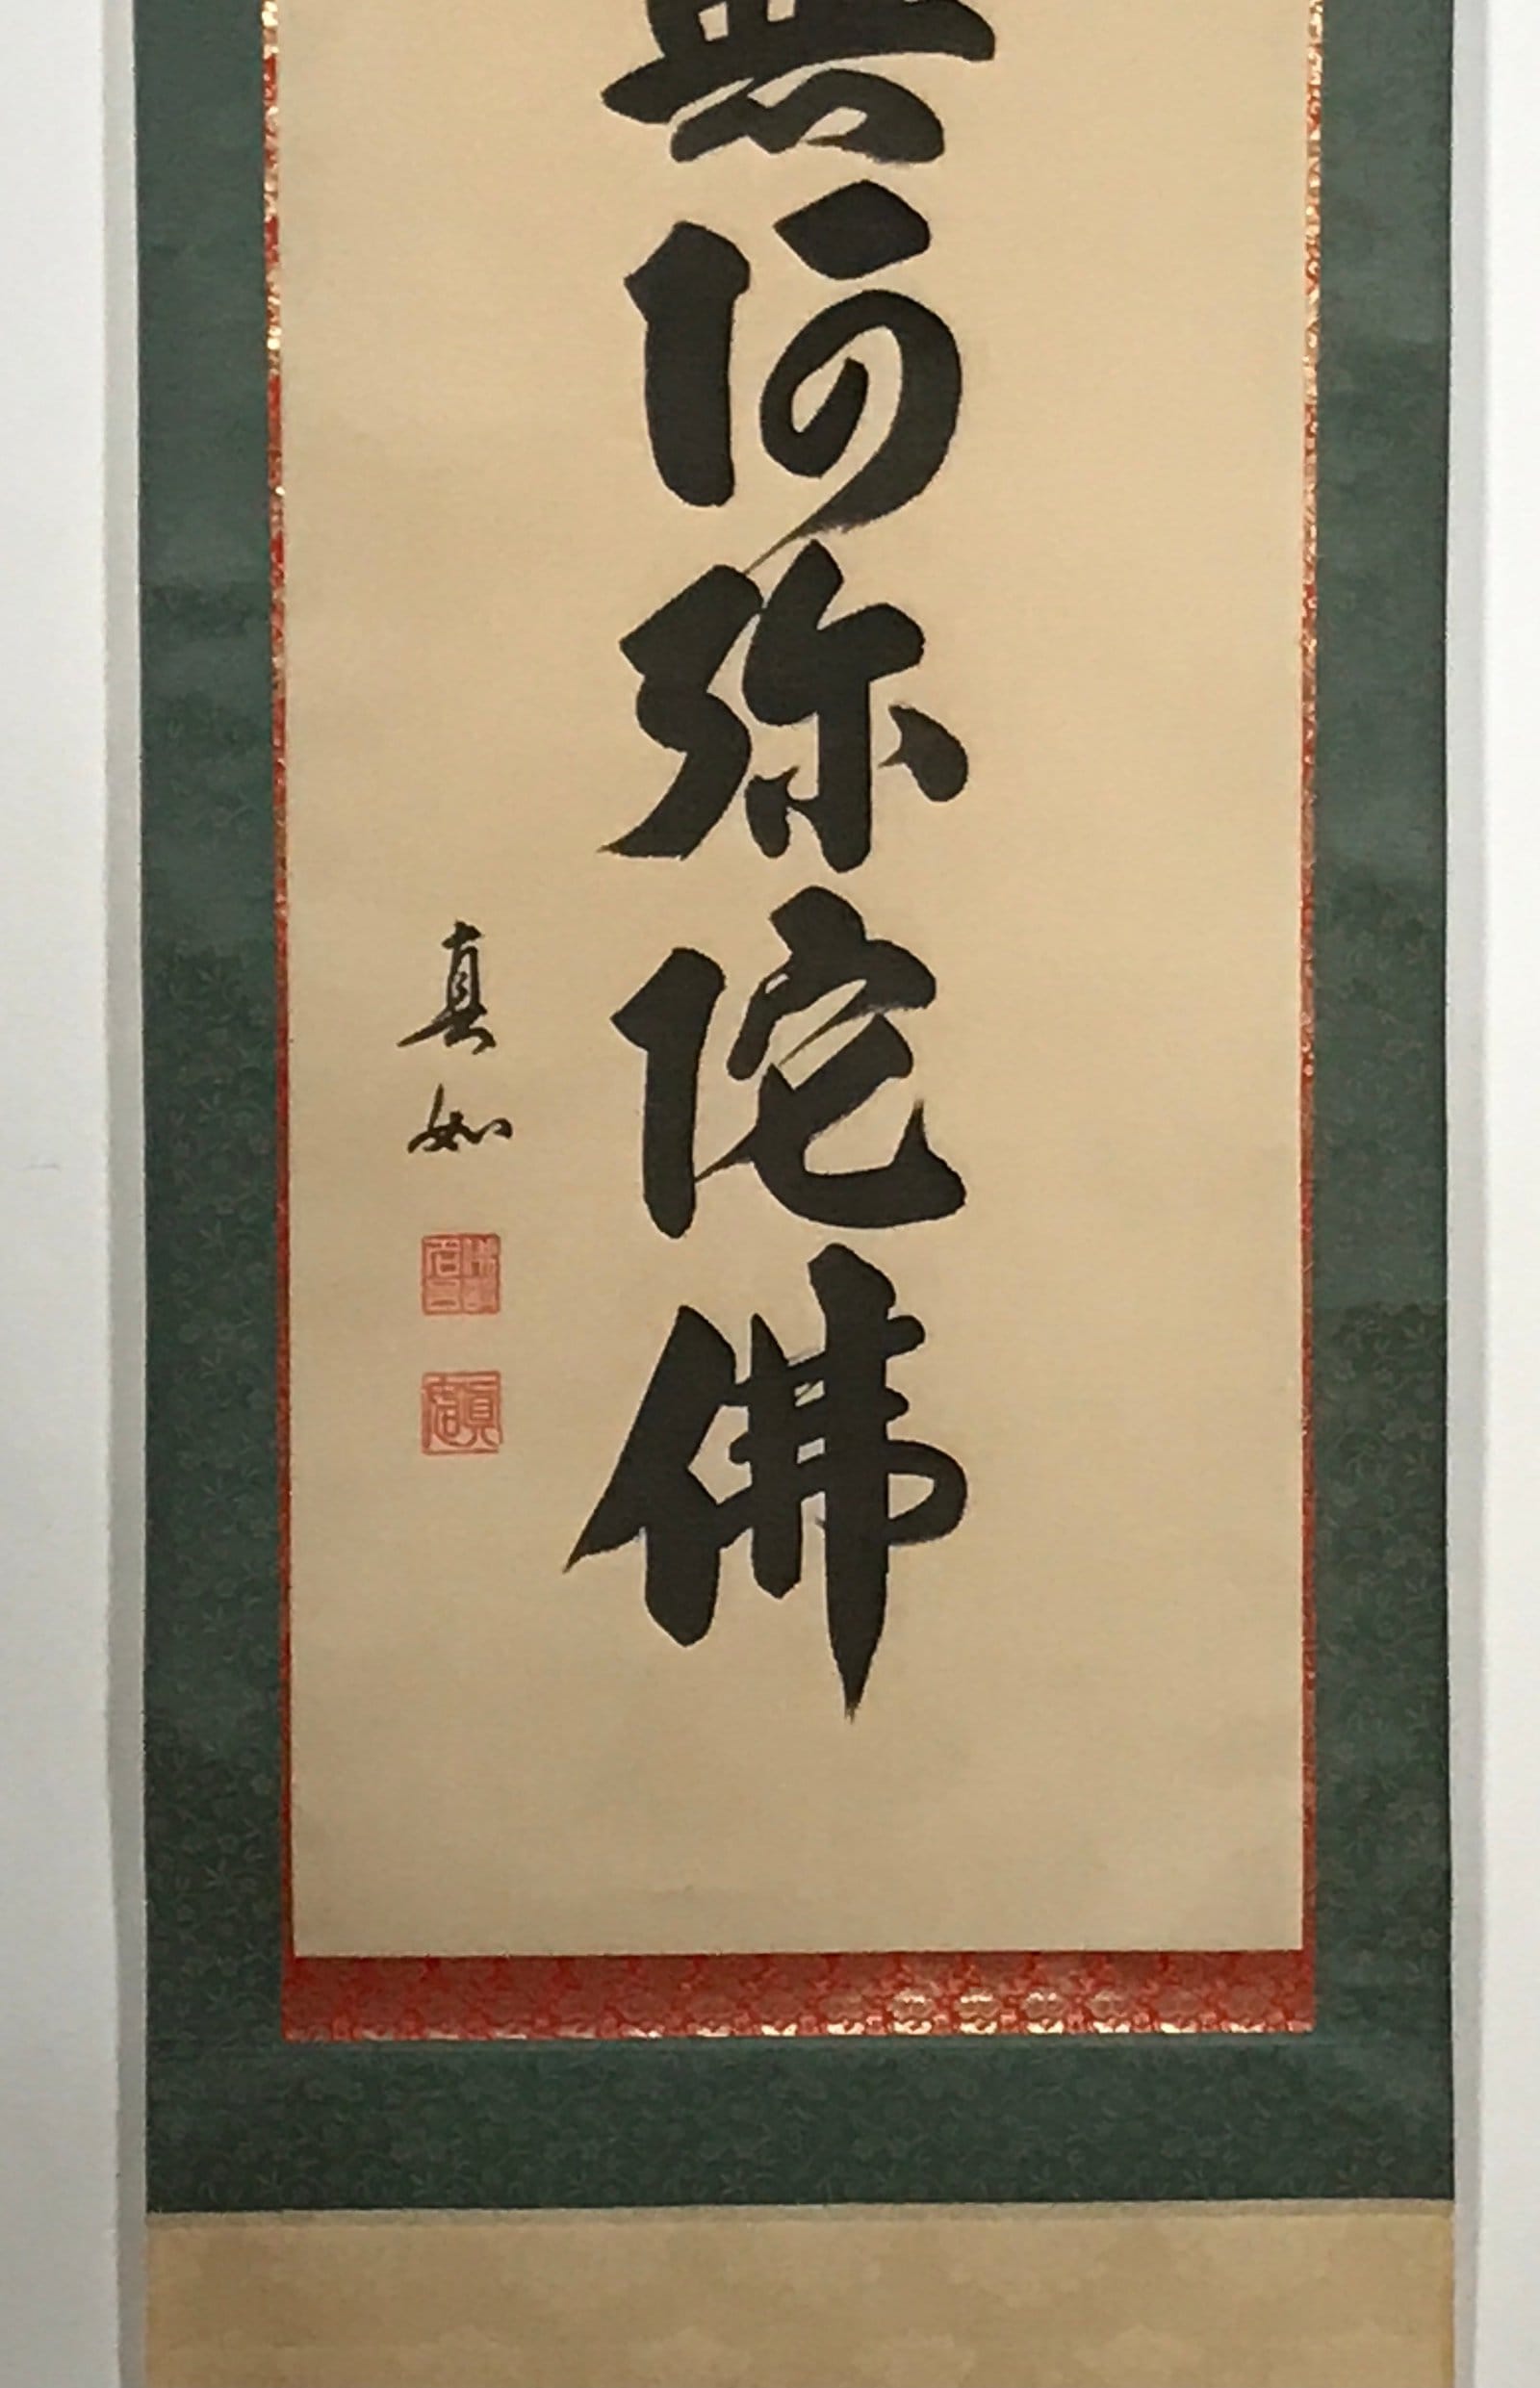 無阿弥陀佛
真如